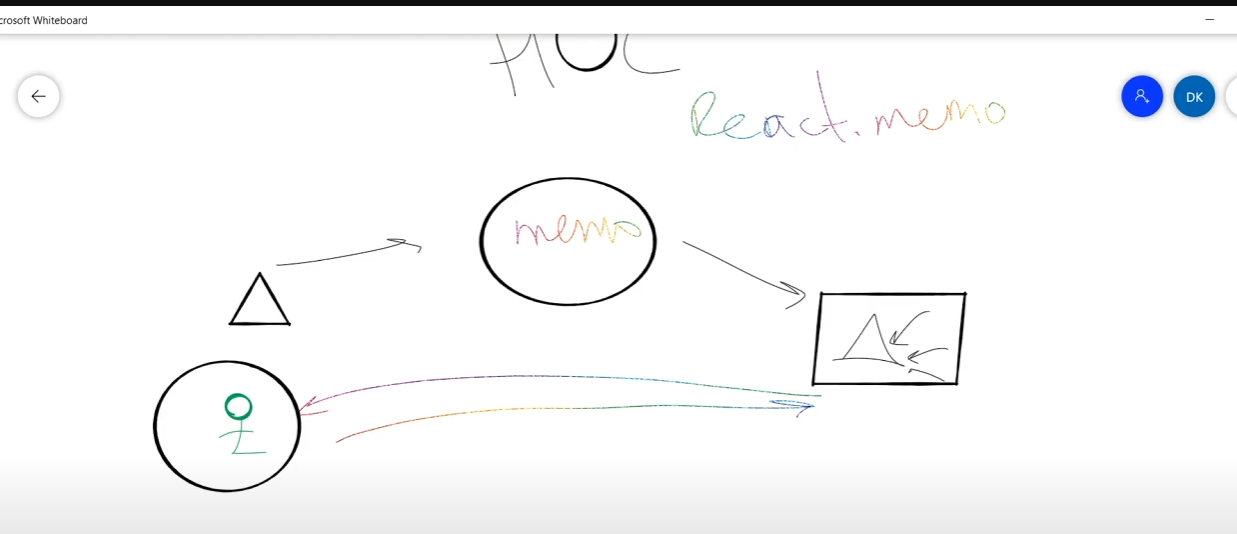 crosoft Whiteboard
HOC
React.memo
DK
memo